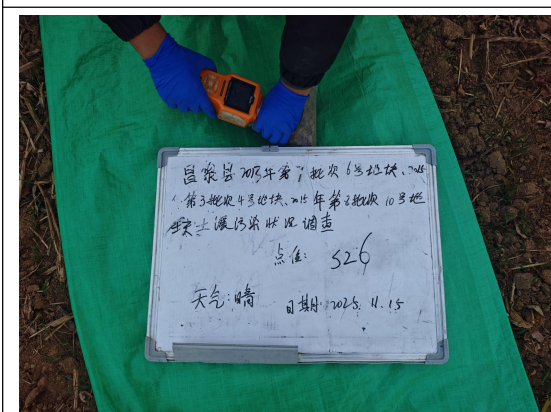 昌梁县2015年第7批次6号地块、2015
第3批次4号地块、2015年第8批次10号地
块土壤污染状况调查
点位: S26
天气:晴 日期:2025.11.15